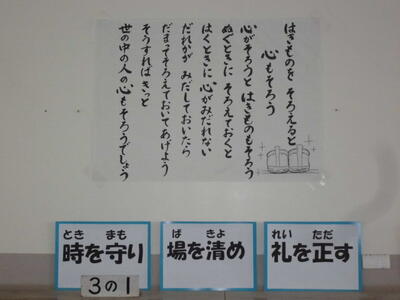 はきものを そろえると
心もそろう
心がそろうと はきものもそろう
ぬぐときに そろえておくと
はくときに 心がみだれない
だれかが みだしておいたら
だまって そろえておいてあげよう
そうすればきっと
世の中の人の心もそろうでしょう
とき まも
時を守り
ば きよ
場を清め
れい ただ
礼を正す
3の1